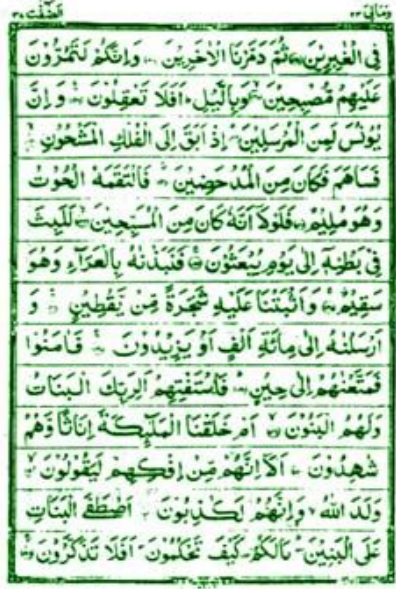 وَمَالِيَ ٢٣ الصّٰٓفّٰت ٣٧
فِی الْغٰبِرِیْنَ ثُمَّ دَمَّرْنَا الْاٰخَرِیْنَ وَاِنَّكُمْ لَتَمُرُّوْنَ
عَلَیْهِمْ مُّصْبِحِیْنَ وَبِالَّیْلِ اَفَلَا تَعْقِلُوْنَ وَاِنَّ
یُوْنُسَ لَمِنَ الْمُرْسَلِیْنَ اِذْ اَبَقَ اِلَی الْفُلْكِ الْمَشْحُوْنِ
فَسَاهَمَ فَكَانَ مِنَ الْمُدْحَضِیْنَ فَالْتَقَمَهُ الْحُوْتُ
وَهُوَ مُلِیْمٌ فَلَوْلَاۤ اَنَّهٗ كَانَ مِنَ الْمُسَبِّحِیْنَ لَلَبِثَ
فِیْ بَطْنِهٖۤ اِلٰی یَوْمِ یُبْعَثُوْنَ فَنَبَذْنٰهُ بِالْعَرَآءِ وَهُوَ
سَقِیْمٌ وَاَنْۢبَتْنَا عَلَیْهِ شَجَرَةً مِّنْ یَّقْطِیْنٍ وَ
اَرْسَلْنٰهُ اِلٰی مِائَةِ اَلْفٍ اَوْ یَزِیْدُوْنَ فَاٰمَنُوْا
فَمَتَّعْنٰهُمْ اِلٰی حِیْنٍ فَاسْتَفْتِهِمْ اَلِرَبِّكَ الْبَنَاتُ
وَلَهُمُ الْبَنُوْنَ اَمْ خَلَقْنَا الْمَلٰٓئِكَةَ اِنَاثًا وَّهُمْ
شٰهِدُوْنَ اَلَاۤ اِنَّهُمْ مِّنْ اِفْكِهِمْ لَیَقُوْلُوْنَ
وَلَدَ اللّٰهُ وَاِنَّهُمْ لَكٰذِبُوْنَ اَصْطَفَی الْبَنَاتِ
عَلَی الْبَنِیْنَ مَالَكُمْ كَیْفَ تَحْكُمُوْنَ اَفَلَا تَذَكَّرُوْنَ